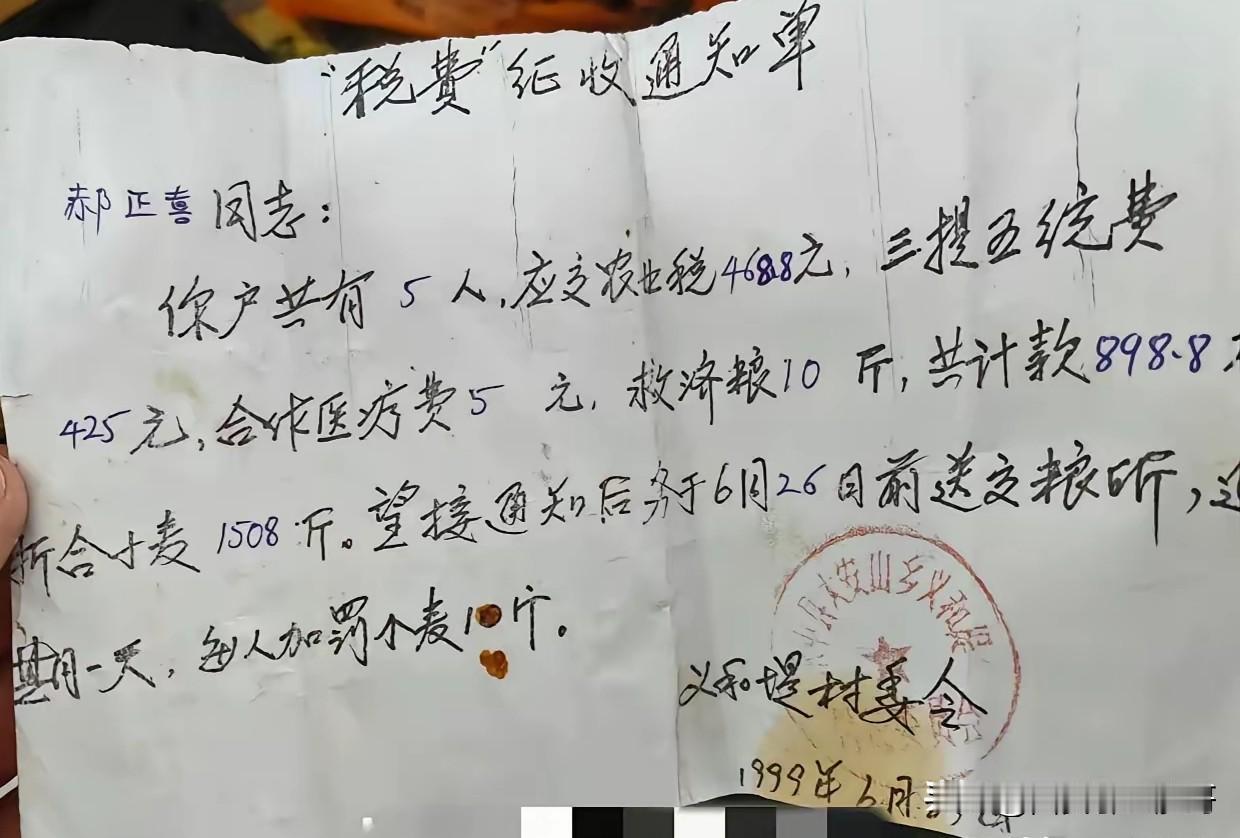 “税费”征收通知单
郝正喜同志：
你户共有5人，应交农业税468.8元，三提五统费
425元，合作医疗费5元，救济粮10斤，共计款898.8元
折合小麦1508斤。望接通知后务于6月26日前送交粮所，过
期一天，每人加罚小麦10斤。
大安山乡义和堤
义和堤村委会
1999年6月